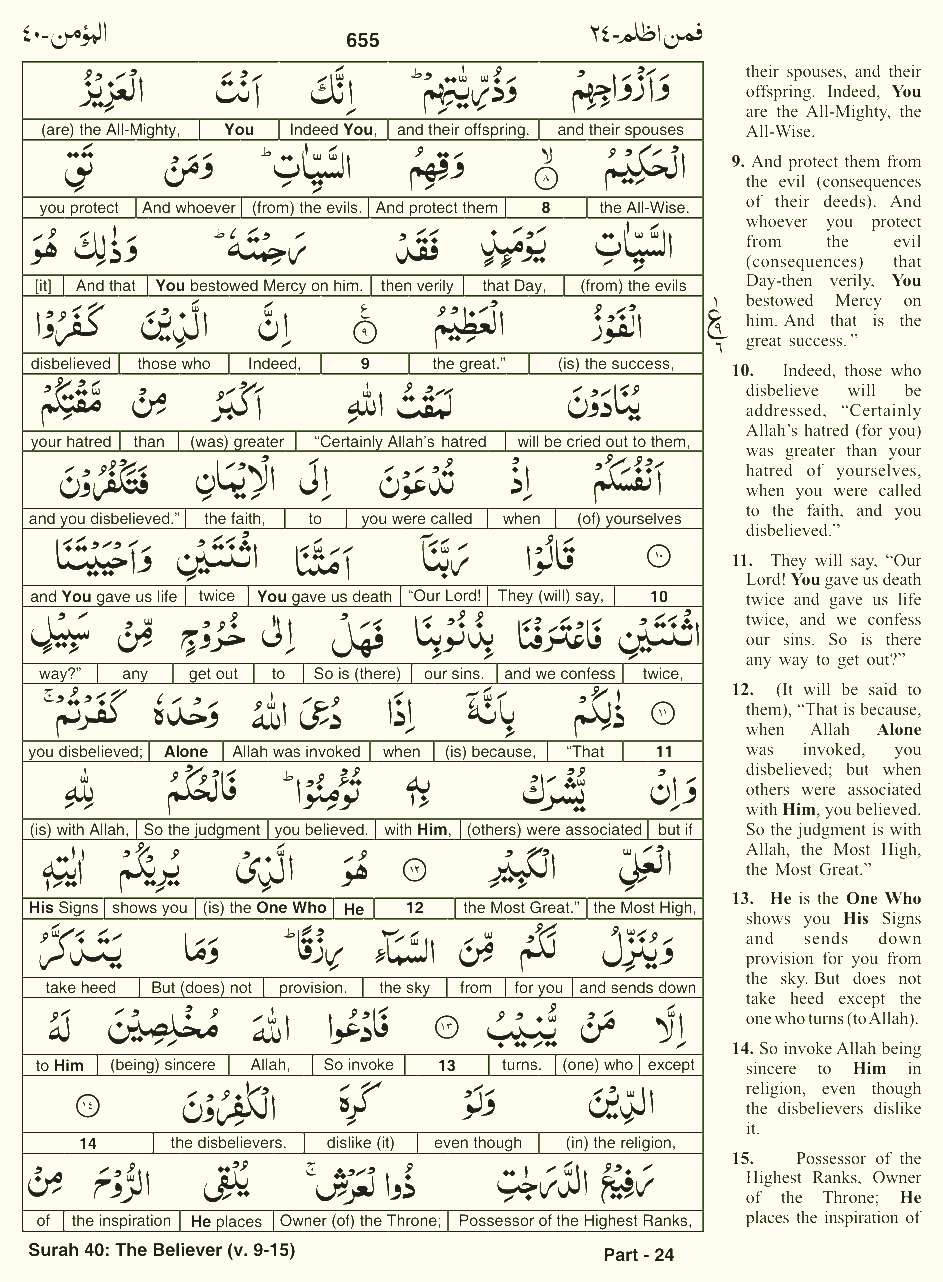 المؤمن-٤٠ 655 فمن اظلم-٢٤
وَاَزْوَاجِهِمْ وَذُرِّيّٰتِهِمْ ؕ اِنَّكَ اَنْتَ الْعَزِيْزُ
(are) the All-Mighty, You Indeed You, and their offspring. and their spouses
الْحَكِيْمُ ۙ ﴿٨﴾ وَقِهِمُ السَّيِّاٰتِ ؕ وَمَنْ تَقِ
you protect And whoever (from) the evils. And protect them 8 the All-Wise.
السَّيِّاٰتِ يَوْمَئِذٍ فَقَدْ رَحِمْتَهٗ ؕ وَذٰلِكَ هُوَ
[it] And that You bestowed Mercy on him. then verily that Day, (from) the evils
الْفَوْزُ الْعَظِيْمُ ﴿٩﴾ ع اِنَّ الَّذِيْنَ كَفَرُوْا
disbelieved those who Indeed, 9 the great.” (is) the success,
يُنَادَوْنَ لَمَقْتُ اللّٰهِ اَكْبَرُ مِنْ مَّقْتِكُمْ
your hatred than (was) greater “Certainly Allah’s hatred will be cried out to them,
اَنْفُسَكُمْ اِذْ تُدْعَوْنَ اِلَى الْاِيْمَانِ فَتَكْفُرُوْنَ
and you disbelieved.” the faith, to you were called when (of) yourselves
﴿١٠﴾ قَالُوْا رَبَّنَاۤ اَمَتَّنَا اثْنَتَيْنِ وَاَحْيَيْتَنَا
and You gave us life twice You gave us death “Our Lord! They (will) say, 10
اثْنَتَيْنِ فَاعْتَرَفْنَا بِذُنُوْبِنَا فَهَلْ اِلٰى خُرُوْجٍ مِّنْ سَبِيْلٍ
way?” any get out to So is (there) our sins. and we confess twice,
﴿١١﴾ ذٰلِكُمْ بِاَنَّهٗۤ اِذَا دُعِىَ اللّٰهُ وَحْدَهٗ كَفَرْتُمْ ۚ
you disbelieved; Alone Allah was invoked when (is) because, “That 11
وَاِنْ يُّشْرَكْ بِهٖ تُؤْمِنُوْا ؕ فَالْحُكْمُ لِلّٰهِ
(is) with Allah, So the judgment you believed. with Him, (others) were associated but if
الْعَلِىِّ الْكَبِيْرِ ﴿١٢﴾ هُوَ الَّذِىْ يُرِيْكُمْ اٰيٰتِهٖ
His Signs shows you (is) the One Who He 12 the Most Great.” the Most High,
وَيُنَزِّلُ لَكُمْ مِّنَ السَّمَآءِ رِزْقًا ؕ وَمَا يَتَذَكَّرُ
take heed But (does) not provision. the sky from for you and sends down
اِلَّا مَنْ يُّنِيْبُ ﴿١٣﴾ فَادْعُوا اللّٰهَ مُخْلِصِيْنَ لَهُ
to Him (being) sincere Allah, So invoke 13 turns. (one) who except
الدِّيْنَ وَلَوْ كَرِهَ الْكٰفِرُوْنَ ﴿١٤﴾
14 the disbelievers. dislike (it) even though (in) the religion,
رَفِيْعُ الدَّرَجٰتِ ذُوا لْعَرْشِ ۚ يُلْقِى الرُّوْحَ مِنْ
of the inspiration He places Owner (of) the Throne; Possessor of the Highest Ranks,
their spouses, and their
offspring. Indeed, You
are the All-Mighty, the
All-Wise.
9. And protect them from
the evil (consequences
of their deeds). And
whoever you protect
from the evil
(consequences) that
Day-then verily, You
bestowed Mercy on
him. And that is the
great success.”
10. Indeed, those who
disbelieve will be
addressed, “Certainly
Allah’s hatred (for you)
was greater than your
hatred of yourselves,
when you were called
to the faith, and you
disbelieved.”
11. They will say, “Our
Lord! You gave us death
twice and gave us life
twice, and we confess
our sins. So is there
any way to get out?”
12. (It will be said to
them), “That is because,
when Allah Alone
was invoked, you
disbelieved; but when
others were associated
with Him, you believed.
So the judgment is with
Allah, the Most High,
the Most Great.”
13. He is the One Who
shows you His Signs
and sends down
provision for you from
the sky. But does not
take heed except the
one who turns (to Allah).
14. So invoke Allah being
sincere to Him in
religion, even though
the disbelievers dislike
it.
15. Possessor of the
Highest Ranks, Owner
of the Throne; He
places the inspiration of
Surah 40: The Believer (v. 9-15) Part - 24